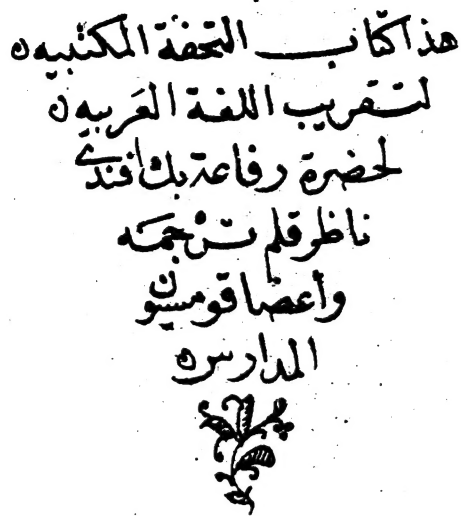 هذا كتاب التحفة المكتبيه
لتقريب اللغة العربيه
لحضرة رفاعة بك افندى
ناظر قلم ترجمه
وأعضا قومسيون
المدارس